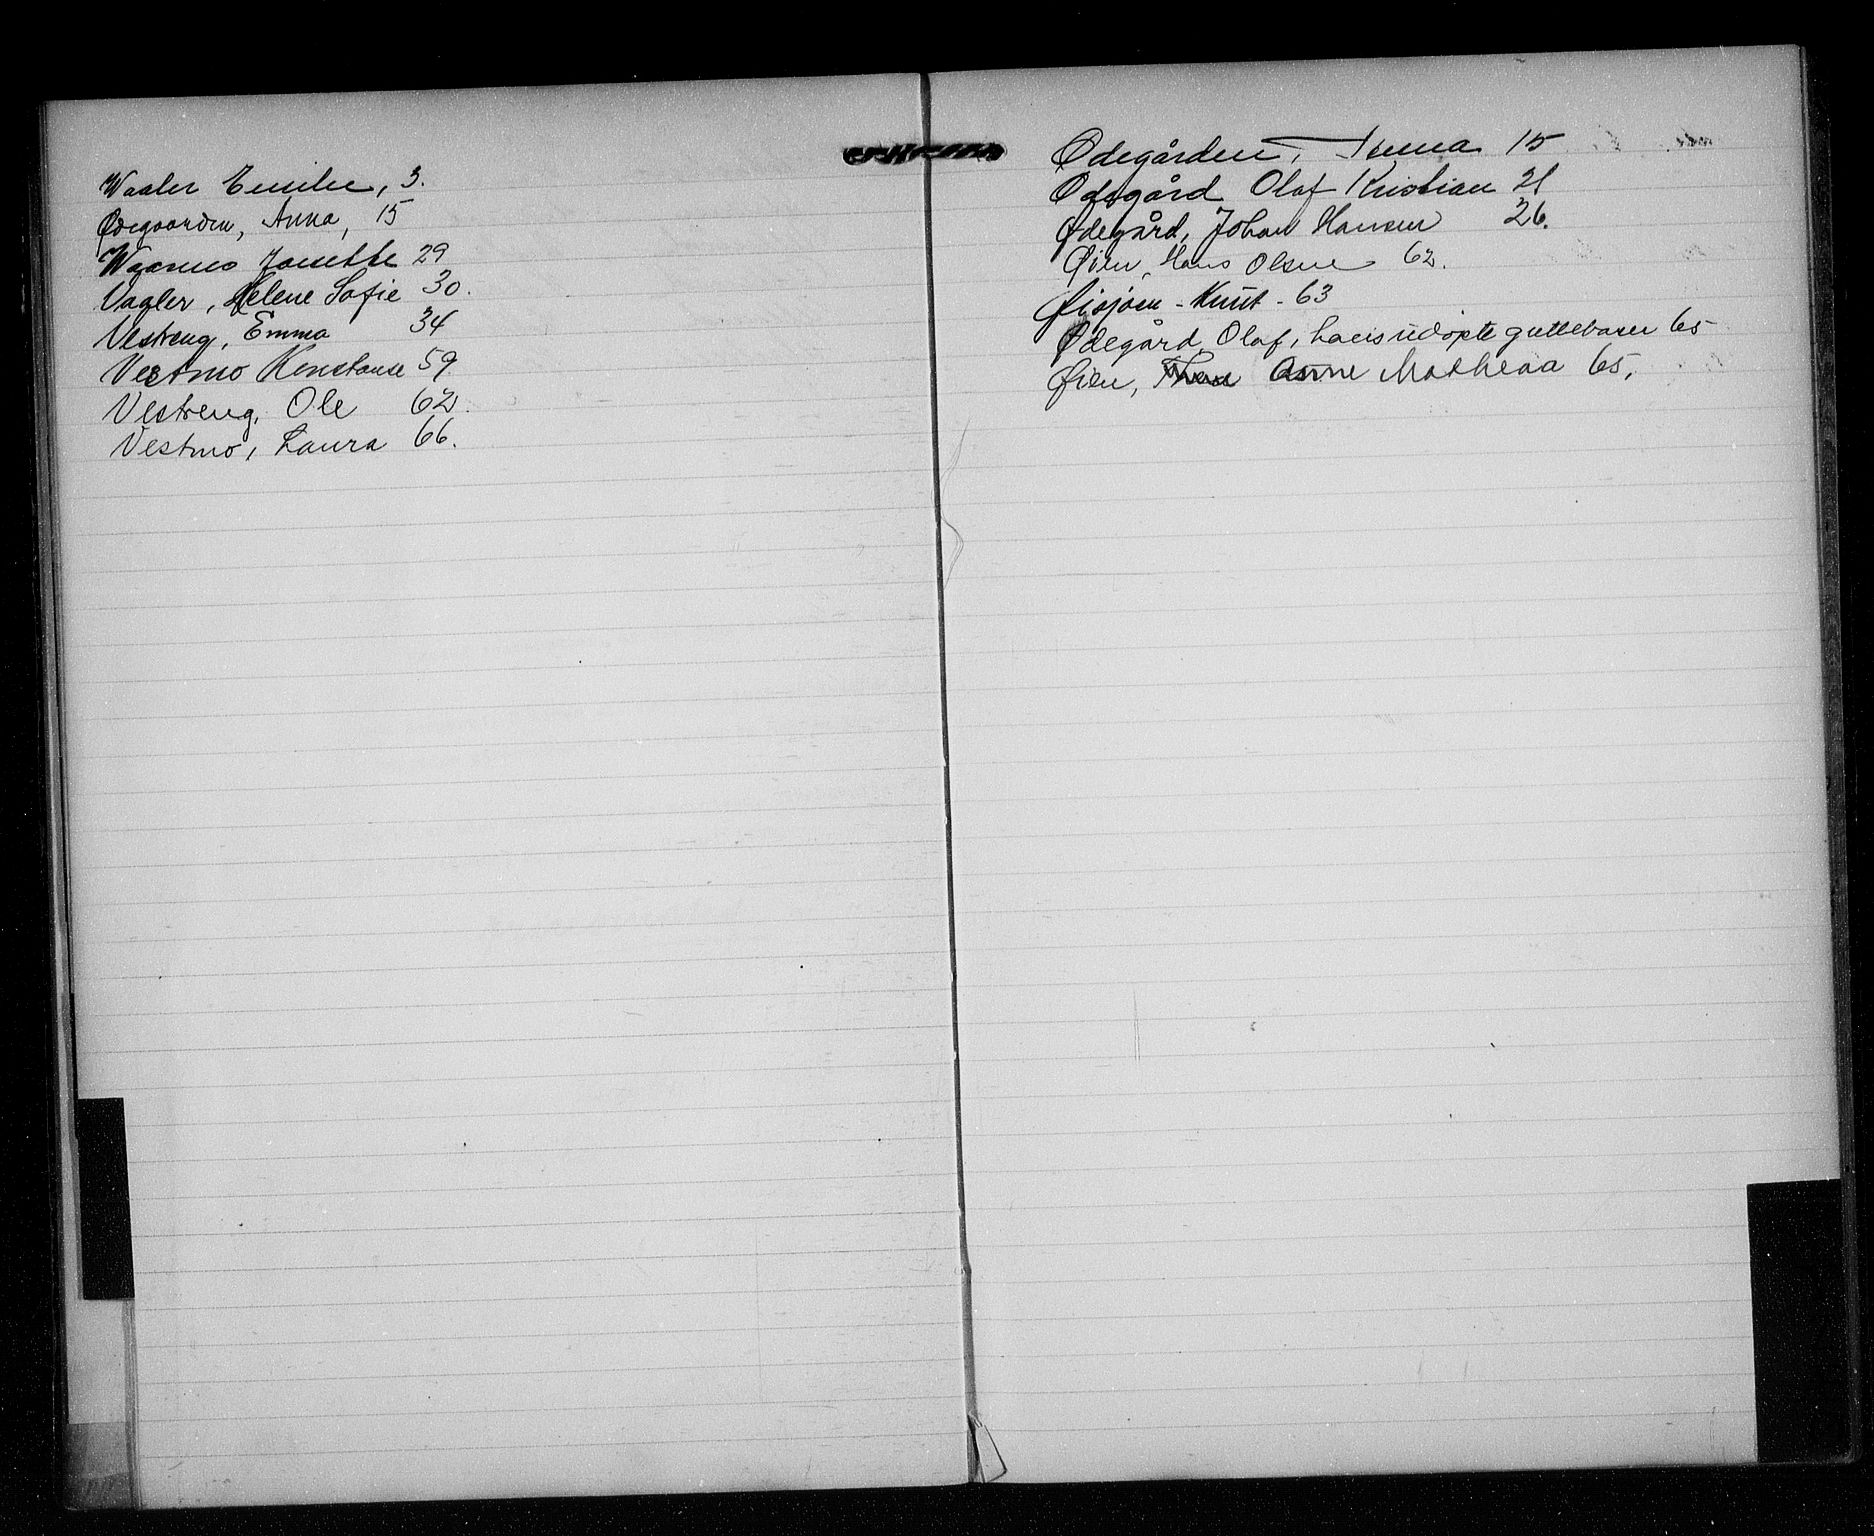 Waaler Emilie, 3.
Ødegaarden, Anna, 15
Jonette 29
Vagler, Helene Sofie 30.
Vestreng, Emma 34
Vestmo Konstanse 59
Vestreng, Ole 62.
Vestmo, Laura 66.
Ødegården, 15
Ødegård Olaf Kristian 21
Ødegård, Johan Hansen 26.
Øien, Hans Olsen 62.
Øisjoen - Knut - 63
Ødegård, Olaf, hans udøpte guttebarn 65
Øien, Anne Mathea 65,